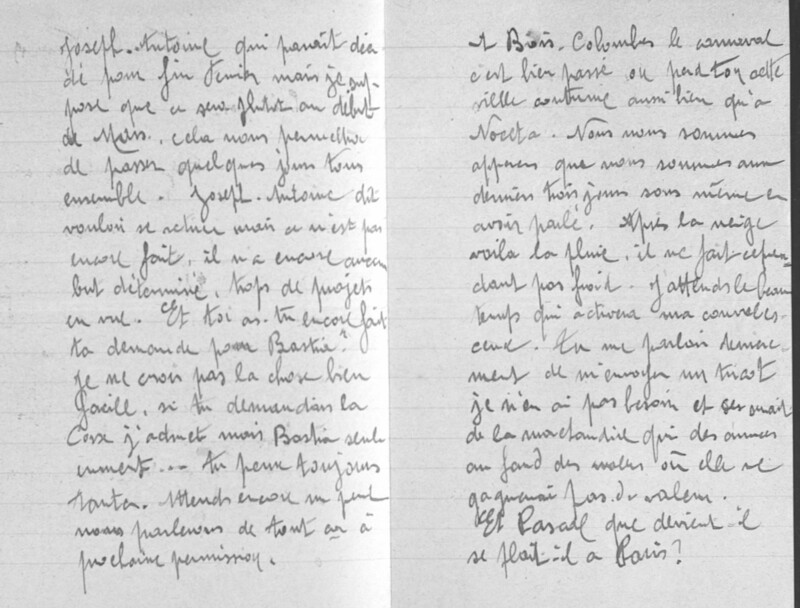 Joseph-Antoine qui parait déci
dé pour fin Fevrier mais je sup-
pose que ce sera plutot au début
de Mars. cela nous permettra
de passer quelques jours tous
ensemble. Joseph-Antoine dit
vouloir se retirer mais ce n'est pas
encore fait, il n'a encore aucun
but déterminé, trops de projets
en vue. Et toi as-tu encore fait
ta demande pour Bastia?
je ne crois pas la chose bien
facile, si tu demandais la
Corse j'admet mais Bastia seule
ment... tu peux toujours
tenter. Attends encore un peu
nous parlerons de tout ça à
prochaine permission.
A Bois-Colombes le carnaval
c'est bien passé ou perd ton cette
vielle coutume aussi bien qu'a
Noceta. Nous nous sommes
apperçus que nous sommes aux
derniers trois jours sans même en
avoir parlé. Après la neige
voila la pluie, il ne fait cepen-
dant pas froid. J'attends le beau
temps qui activera ma convales-
cence. Tu me parlais dernière-
ment de m'envoyer un tricot
je n'en ai pas besoin et ce serait
de la marchandise qui des années
au fond des malles où elle ne
gagnerai pas de valeur.
Et Pascal que devient-il
se plait-il a Paris?